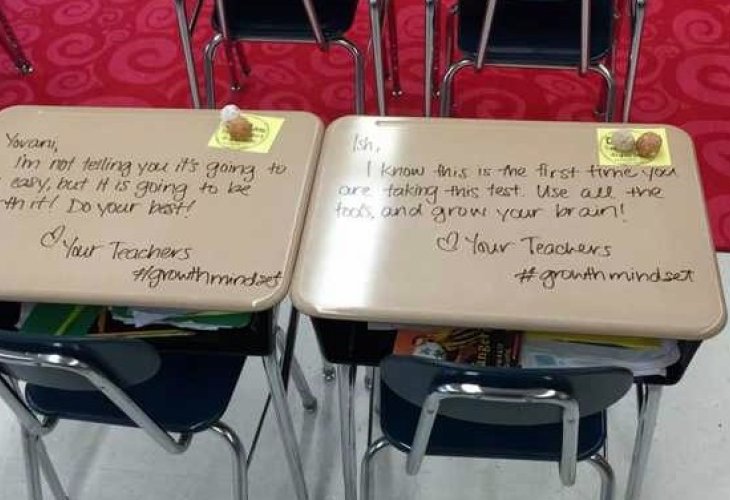 Yovani,
I'm not telling you it's going to
easy, but it is going to be
th it! Do your best!
♡ Your Teachers
#growthmindset
Ish,
I know this is the first time you
are taking this test. Use all the
tools, and grow your brain!
♡ Your Teachers
#growthmindset